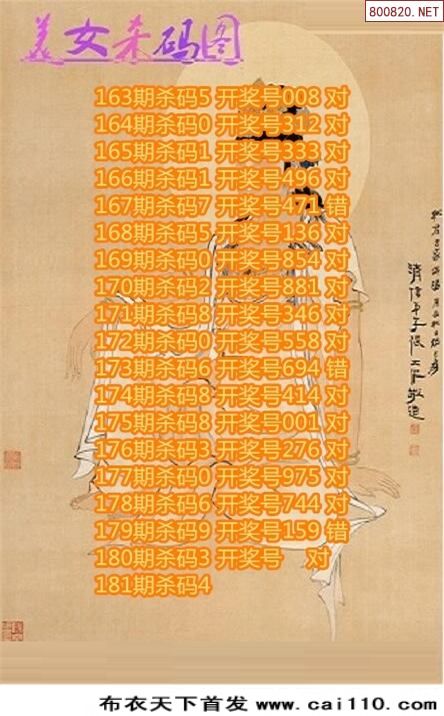 800820.NET
美女杀码图
163期杀码5 开奖号008 对
164期杀码0 开奖号312 对
165期杀码1 开奖号333 对
166期杀码1 开奖号496 对
167期杀码7 开奖号471 错
168期杀码5 开奖号136 对
169期杀码0 开奖号854 对
170期杀码2 开奖号881 对
171期杀码8 开奖号346 对
172期杀码0 开奖号558 对
173期杀码6 开奖号694 错
174期杀码8 开奖号414 对
175期杀码8 开奖号001 对
176期杀码3 开奖号276 对
177期杀码0 开奖号975 对
178期杀码6 开奖号744 对
179期杀码9 开奖号159 错
180期杀码3 开奖号 对
181期杀码4
布衣天下首发 www.cai110.com